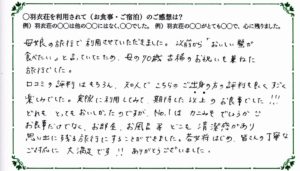 〇羽衣荘を利用されて（お食事・ご宿泊）のご感想は？
例）羽衣荘の〇〇は他の〇〇にはなく、〇〇でした。　例）羽衣荘の〇〇がとても〇〇で、心に残りました。
母娘の旅行で利用させていただきました。以前から"おいしい蟹が
食べたい。"と言っていたため、母の70歳 古稀のお祝いも兼ねた
旅行でした。
口コミの評判はもちろん、知人でこちらのご出身の方の評判も良く、すごく
楽しみでした。実際に利用してみて、期待した以上のお食事でした!!!
どれも とってもおいしかったのですが、No.1は カニみそでしょうか
お食事だけでなく、お部屋、お風呂 等 どこも 清潔感があり
思い出に残る旅行にすることができました。若女将はじめ、皆さんの丁寧な
ご対応に 大満足です!! ありがとうございました。